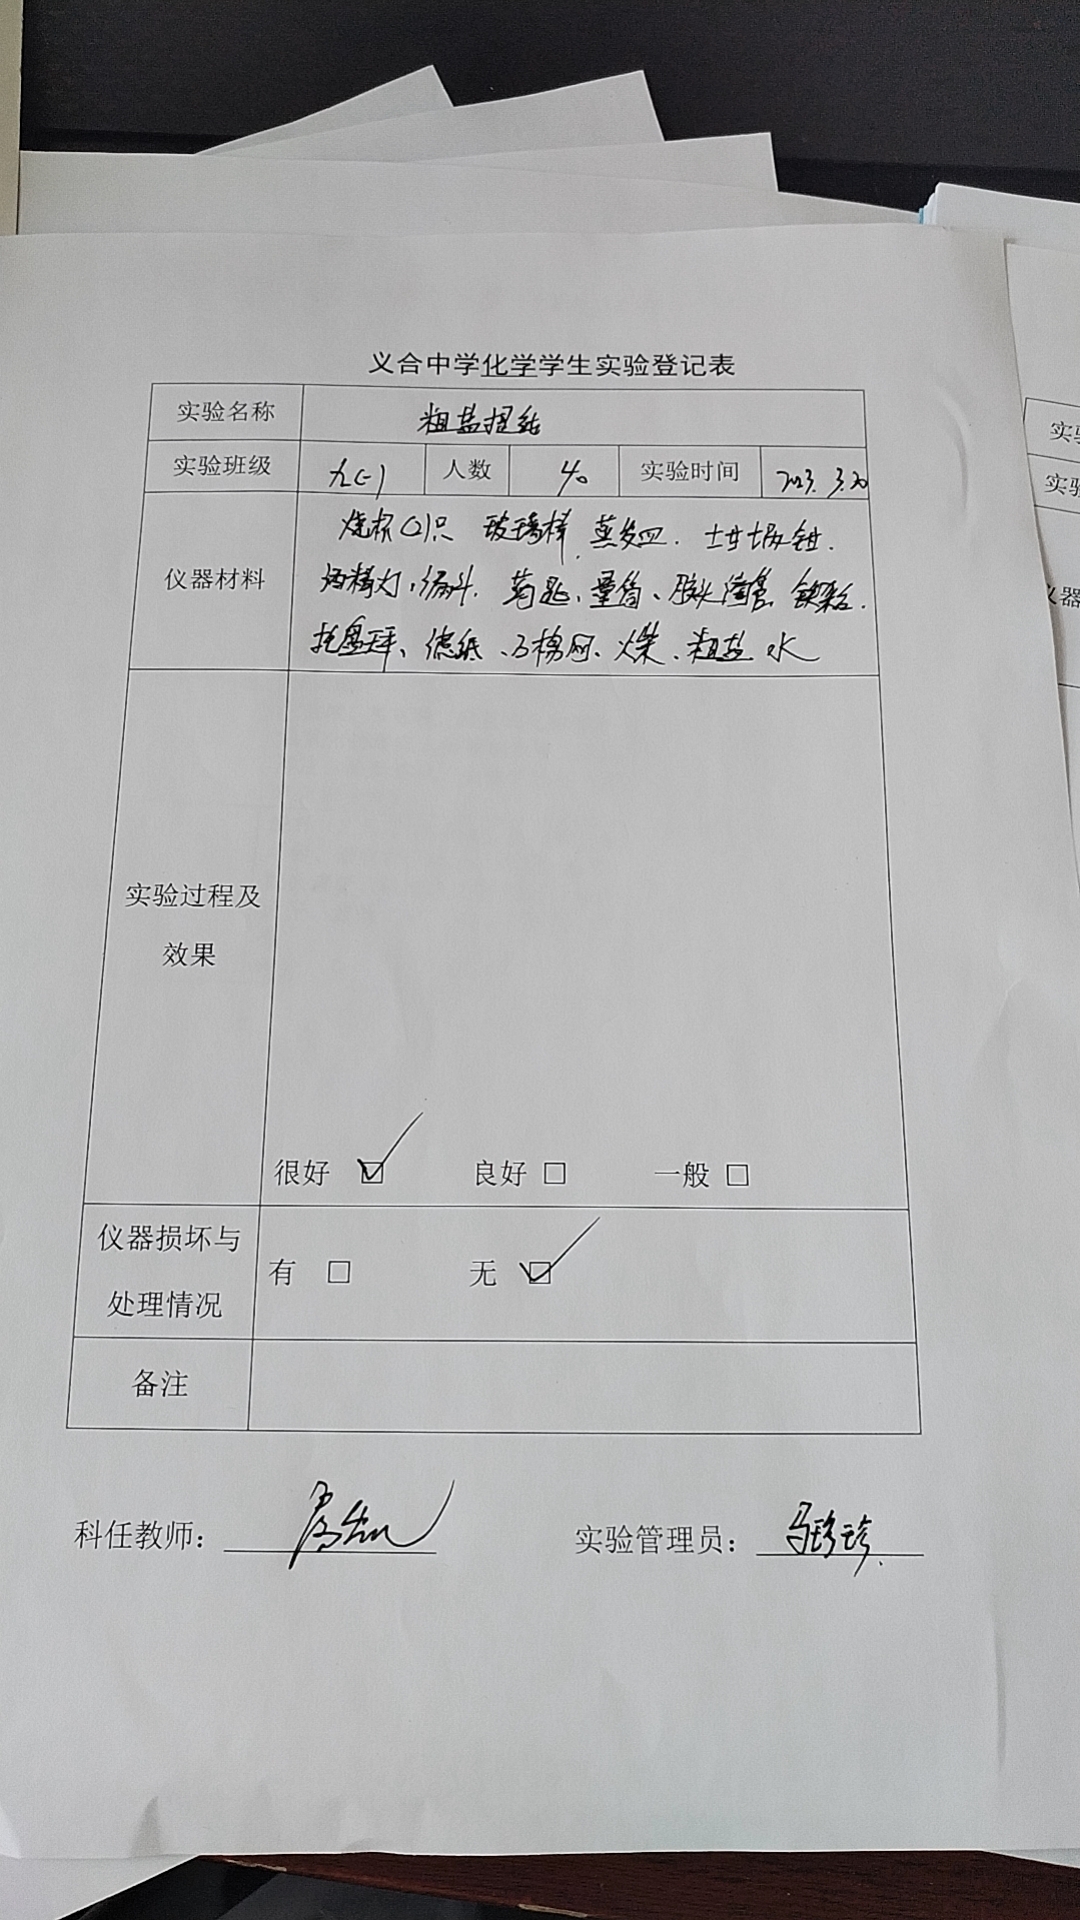 义合中学化学学生实验登记表
实验名称 粗盐提纯
实验班级 九(一) 人数 40 实验时间 2023.3.20
烧杯(2)只 玻璃棒、蒸发皿、坩埚钳、
仪器材料 酒精灯、漏斗、药匙、量筒、胶头滴管、铁架台、
托盘天平、滤纸、石棉网、火柴、粗盐 水
实验过程及
效果
很好 ☑ 良好 □ 一般 □
仪器损坏与
处理情况
有 □ 无 ☑
备注
科任教师： 实验管理员：马珍珍
实
实验
仪器